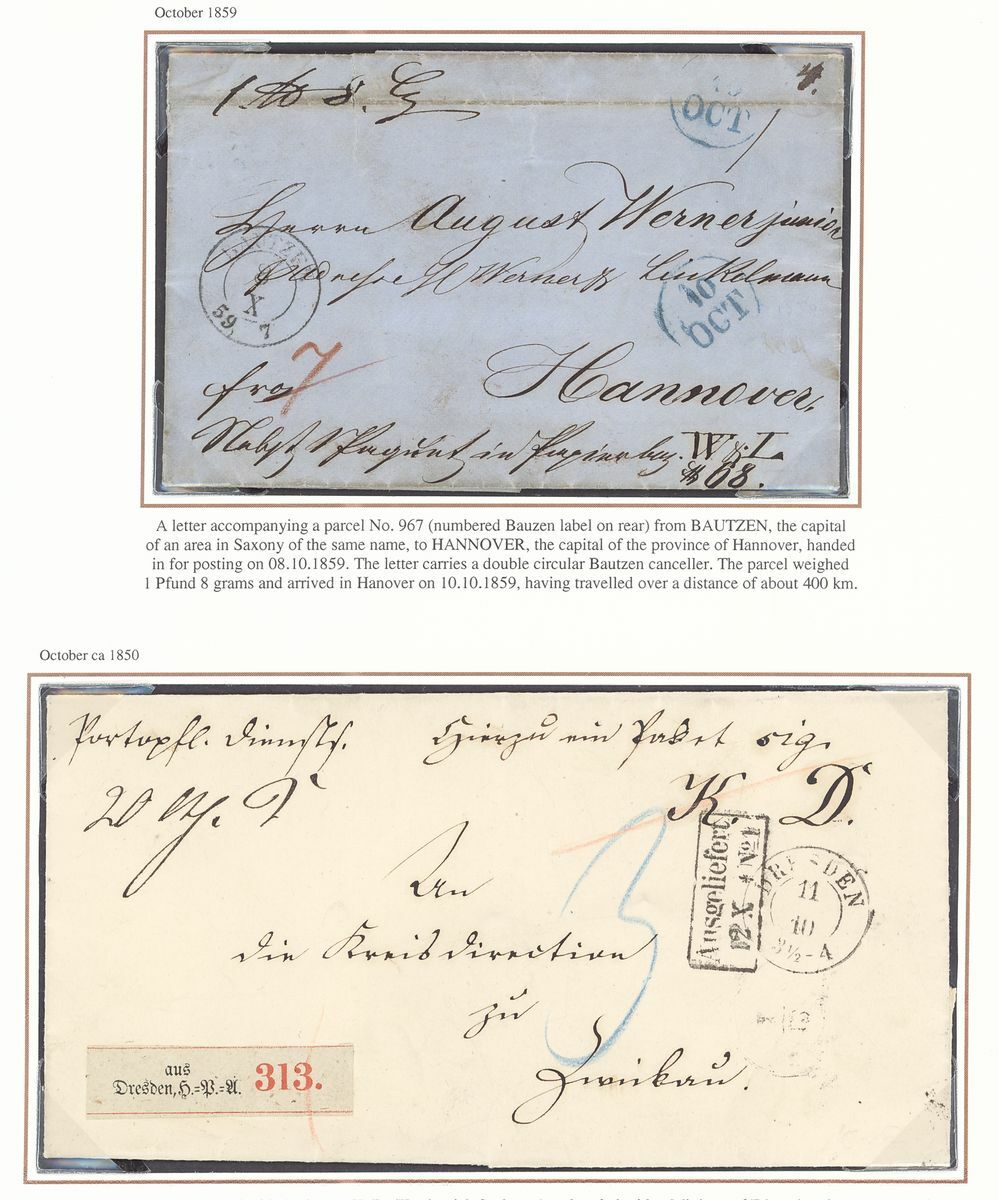 October 1859
4.
OCT
Herrn August Werner junior
Adresse H Werner & Linkelmann
BAUTZEN
X
59. 7
10
OCT
7
Hannover.
fro
Nebst 1 Paquet in Papier bez. W & L.
# 68.
A letter accompanying a parcel No. 967 (numbered Bauzen label on rear) from BAUTZEN, the capital
of an area in Saxony of the same name, to HANNOVER, the capital of the province of Hannover, handed
in for posting on 08.10.1859. The letter carries a double circular Bautzen canceller. The parcel weighed
1 Pfund 8 grams and arrived in Hanover on 10.10.1859, having travelled over a distance of about 400 km.
October ca 1850
Portopfl. Diensts. Hierzu ein Paket sig.
20 Lth. K. D.
3
Ausgeliefert
12 X * No 1
DRESDEN
11
10
3½-4
An
die Kreisdirection
zu
Zwickau.
aus
Dresden, H.=P.=A. 313.